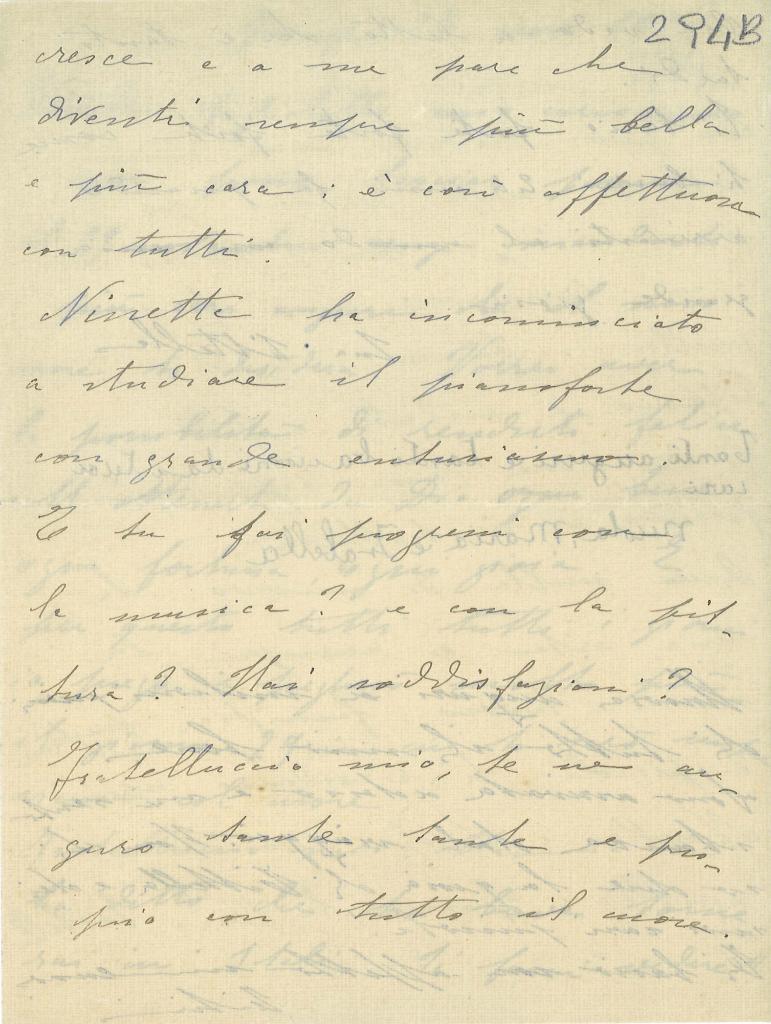 294B
cresce e a me pare che
diventi sempre più bella
e più cara; è così affettuosa
con tutti.
Ninette ha incominciato
a studiare il pianoforte
con grande entusiasmo.
E tu fai progressi con
la musica? e con la pit-
tura? Hai soddisfazioni?
Fratelluccio mio, te ne au-
guro tante tante e pro-
prio con tutto il cuore.